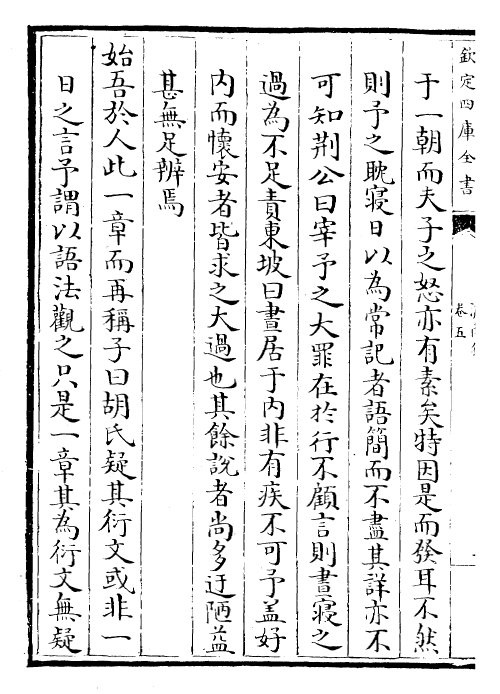 欽定四庫全書
卷五
于一朝而夫子之怒亦有素矣特因是而發耳不然
則予之耽寢日以為常記者語簡而不盡其詳亦不
可知荆公曰宰予之大罪在於行不顧言則晝寢之
過為不足責東坡曰晝居于內非有疾不可予盖好
内而懷安者皆求之大過也其餘說者尚多迂陋益
甚無足辨焉
始吾於人此一章而再稱子曰胡氏疑其衍文或非一
日之言予謂以語法觀之只是一章其為衍文無疑